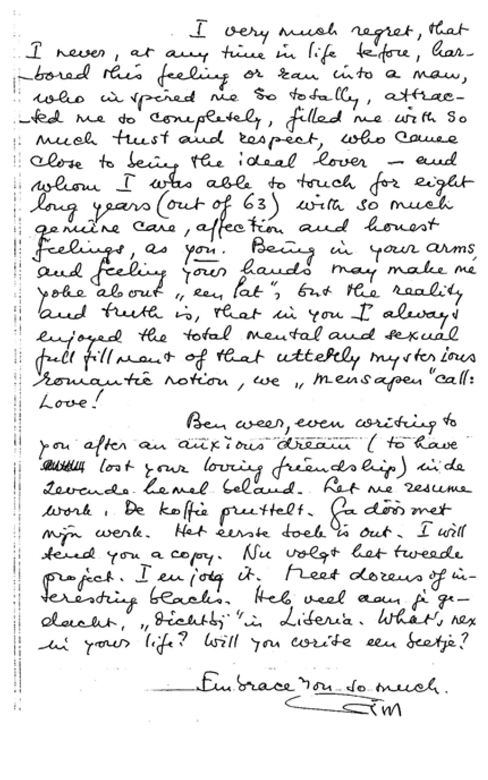 I very much regret, that
I never, at any time in life before, har-
bored this feeling or ran into a man,
who inspired me so totally, attrac-
ted me so completely, filled me with so
much trust and respect, who came
close to being the ideal lover — and
whom I was able to touch for eight
long years (out of 63) with so much
genuine care, affection and honest
feelings, as you. Being in your arms,
and feeling your hands may make me
yoke about „een lat", but the reality
and truth is, that in you I always
enjoyed the total mental and sexual
full fillment of that utterly mysterious
romantic notion, we „mensapen" call:
Love!
Ben weer, even writing to
you after an anxious dream (to have
lost your loving friendship) in de
zevende hemel beland. Let me resume
work. De koffie pruttelt. Ga dóór met
mijn werk. Het eerste boek is out. I will
send you a copy. Nu volgt het tweede
project. I enjoy it. Meet dozens of in-
teresting blacks. Heb veel aan je ge-
dacht, „dichtbij" in Liberia. What's nex
in your life? Will you write een beetje?
Embrace you so much.